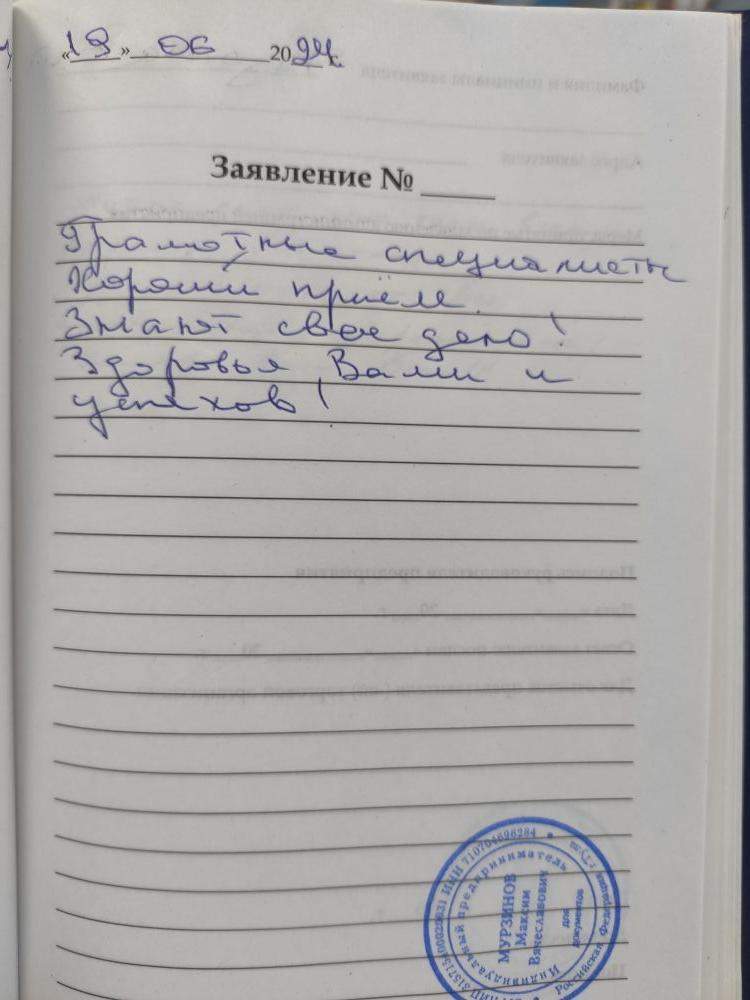 «19» 06 2024 г.
Заявление №
Грамотные специалисты
Хороший приём.
Знают свое дело!
Здоровья Вам и
успехов!
ИНН 710704696284
Индивидуальный предприниматель
МУРЗИНОВ
Максим
Вячеславович
для
документов
Российская Федерация